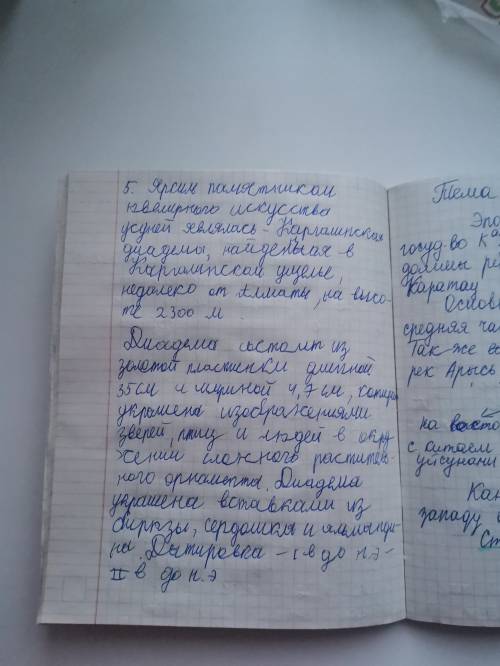 5. Ярким памятником
ювелирного искусства
усуней являлась - Каргалинская
диадема, найденная в
Каргалинском ущелье,
недалеко от Алматы, на высо-
те 2300 м.
Диадема состоит из
золотой пластинки длинной
35 см и шириной 4,7 см, которая
украшена изображениями
зверей, птиц и людей в окру
жении сложного раститель-
ного орнамента. Диадема
украшена вставками из
бирюзы, сердолика и альманди-
на. Датировка - I в до н.э -
II в до н.э
Тема
госуд-во
долины
Каратау
Основ
средняя час
Так же
рек Арысь
на
с
уйсунами
Кан
западу
Ст